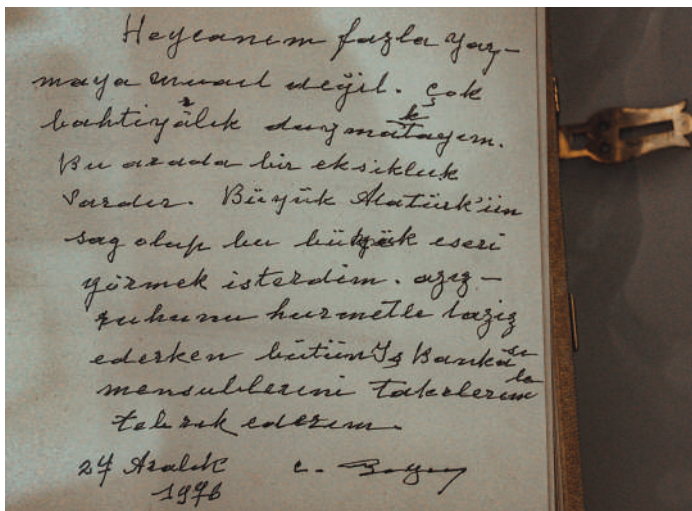 Heycanım fazla yaz-
maya musaıt değil. Çok
bahtiyârlık duymaktayım.
Bu arada bir eksikluk
vardır. Büyük Atatürk'ün
sag olup bu büyük eseri
görmek isterdim. aziz-
ruhunu hurmetle taziz
ederken bütün İş Bankası
mensublerini takdirlerimle
tebrik ederim.
27 Aralık C. Bayar
1976